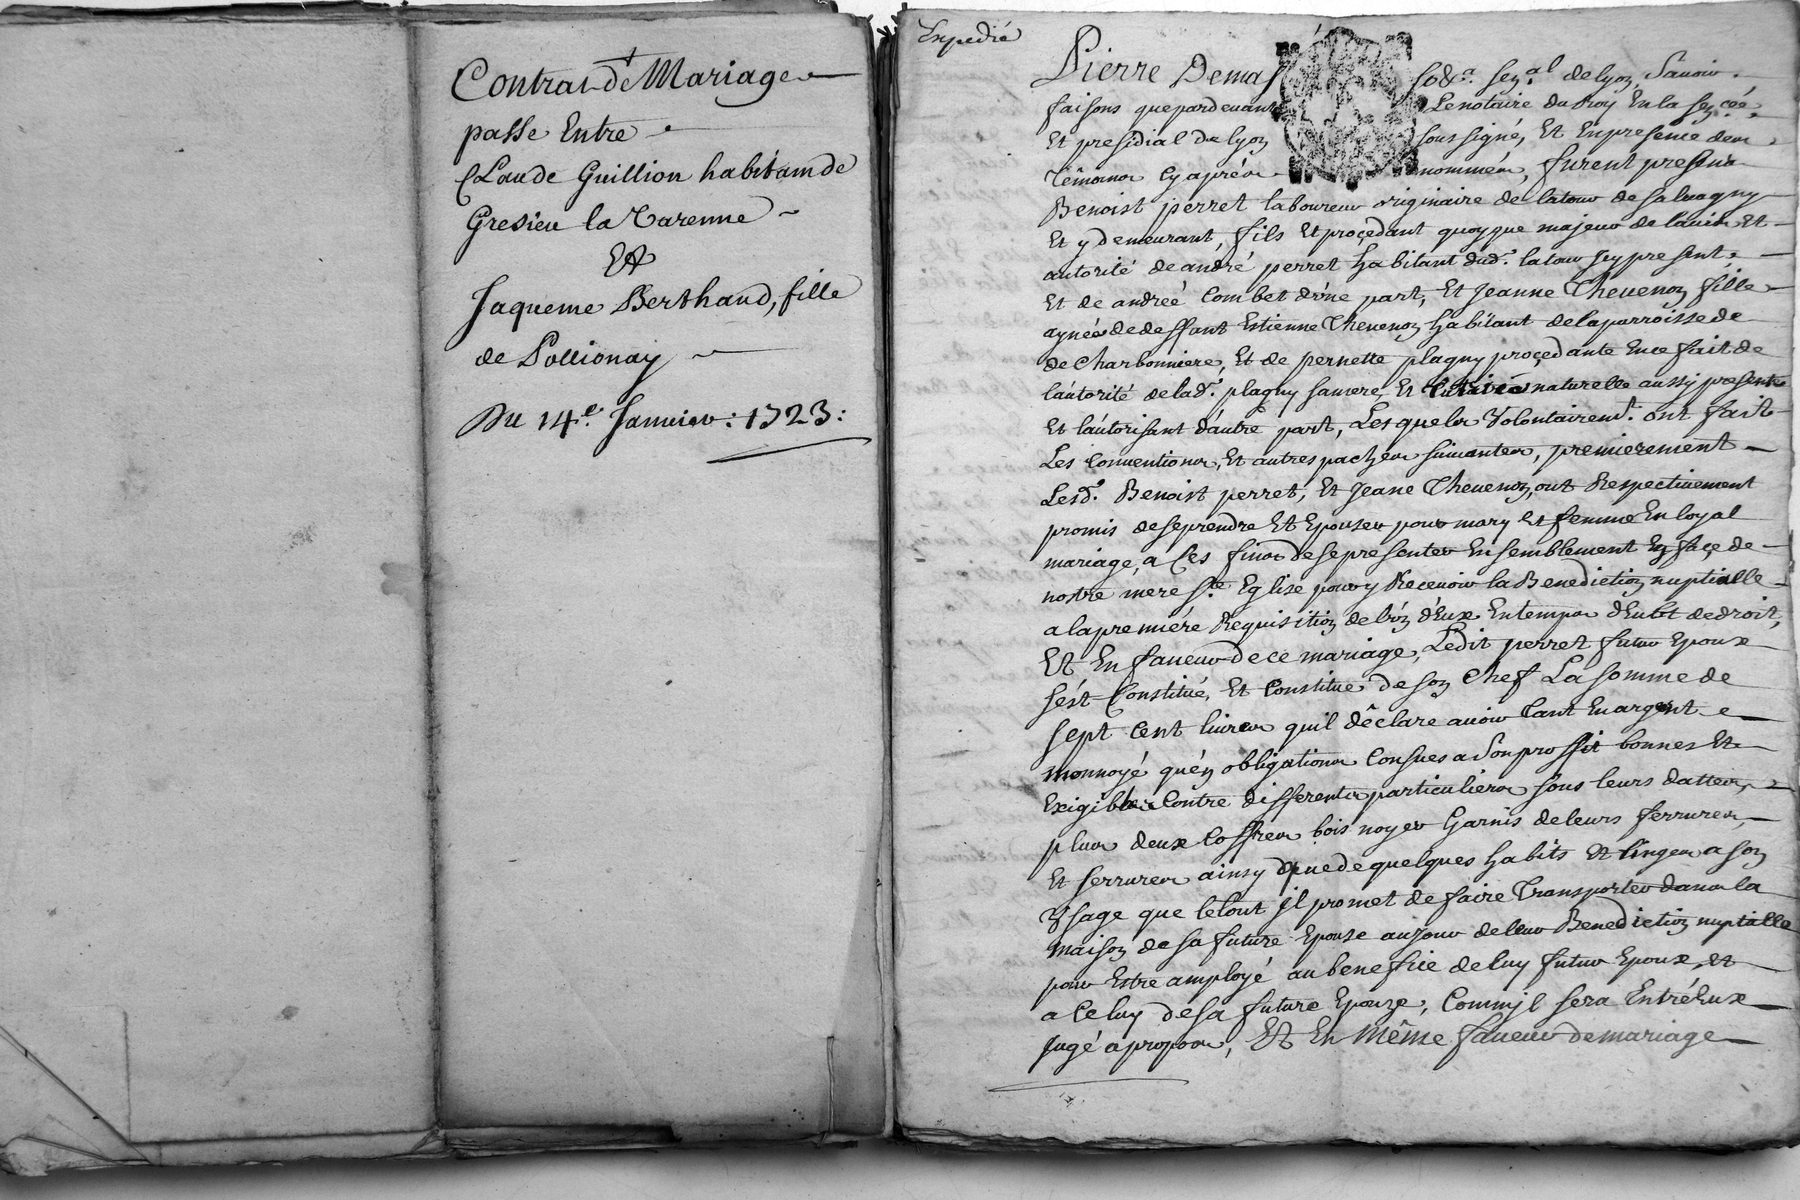 Contrat de Mariage
passe Entre
Claude Guillion habitam de
Gresieu la Varenne
Et
Jaqueme Berthaud, fille
de Pollionay
Du 14e. Janvier: 1723:
Expedié
Pierre Demas senal de lyon Savoir
faisons que pardevant Le notaire du Roy En la sencée
Et presidial de lyon sous signé, Et En presence des
Témoins cy aprés nommés, furent presens
Benoist perret laboureur originaire de latour de salvagny
Et y demeurant, fils Et proçedant quoyque majeur de lavis Et
autorité de andré perret habitant dud. latour Jcy present,
Et de andreé Combet d'une part, Et Jeanne Thevenon fille
aynée de deffunt Estienne Thevenon habitant de la parroisse de
de Charbonniere, Et de pernette plagny proçedante En ce fait de
lautorité de lad. plagny sa mere, Et tutrice naturelle aussy presente
Et lautorisant d'autre part, Lesquels Volontairemt. ont fait
Les Conventions, Et autres paches suivantes, premierement
Lesd. Benoist perret, Et Jeane Thevenon, ont Respectivement
promis de se prendre Et Epouser pour mary Et femme En loyal
mariage, a Ces fins de se presenter Ensemblement En façe de
nostre mere Ste Eglise pour y Recevoir la Benediction nuptialle
a la premiére Requisition de l'un d'Eux En temps d'Eub Et de droit,
Et En faveur de ce mariage, Ledit perret futur Epoux
s'ést Constitué, Et Constitue de son Chef La somme de
sept cent livres quil déclare avoir Tant En argent
monnoyé quén obligations Consues a Son proffit bonnes Et
Exigibles Contre differents particuliers sous leurs dattes,
plus deux Coffres bois noyer Garnis de leurs ferrures,
Et serrures ainsy que de quelques habits Et linges a son
Ysage que le tout jl promet de faire Transporter dans la
maison de sa future Epouse au jour de leur Benediction nuptialle
pour Estre amployé au benefice de luy futur Epoux, Et
a Celuy de sa future Epouze, Commjl sera Entré Eux
jugé a propos, Et En Même faveur de mariage